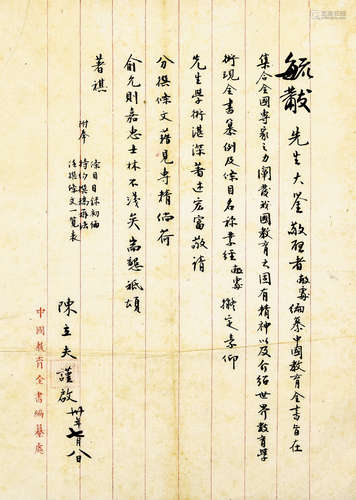 毓黻先生大鉴敬啓者敝處編纂中國教育全書旨在
集合全國專家之力闡發我國教育之固有精神以及介紹世界教育學
術現全書纂例及條目名稱業經敝處擬定素仰
先生學術湛深著述宏富敬請
分撰條文藉見專精倘荷
俞允則嘉惠士林不淺矣耑懇祗頌
著祺
附奉
條目目錄初編
特約撰稿辦法
任撰條文一覽表
陳立夫謹啟
卅年七月八日
中國教育全書編纂處